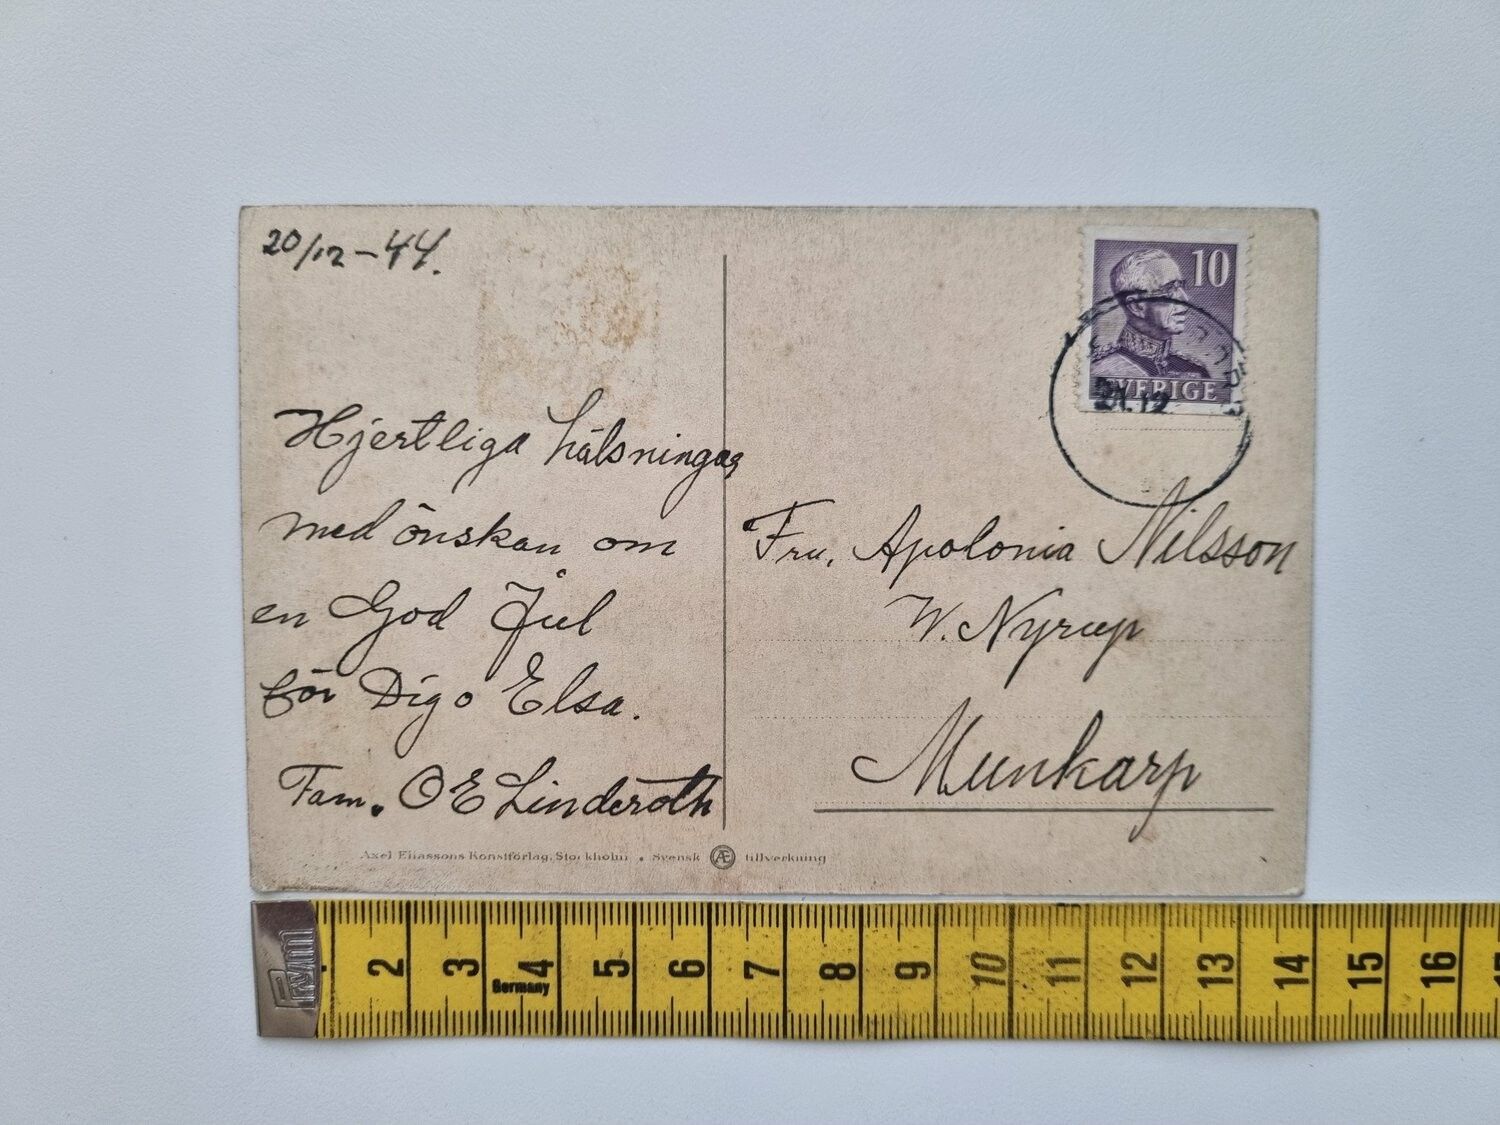 20/12-44.
Hjertliga hälsningar
med önskan om
en God Jul
för Dig o Elsa.
Fam. O E Linderoth
10
SVERIGE
21.12
Fru. Apolonia Nilsson
W. Nyrup
Munkarp
Axel Eliassons Konstförlag, Stockholm • Svensk Æ tillverkning
Prym
2 3 4 5 6 7 8 9 10 11 12 13 14 15 16
Germany